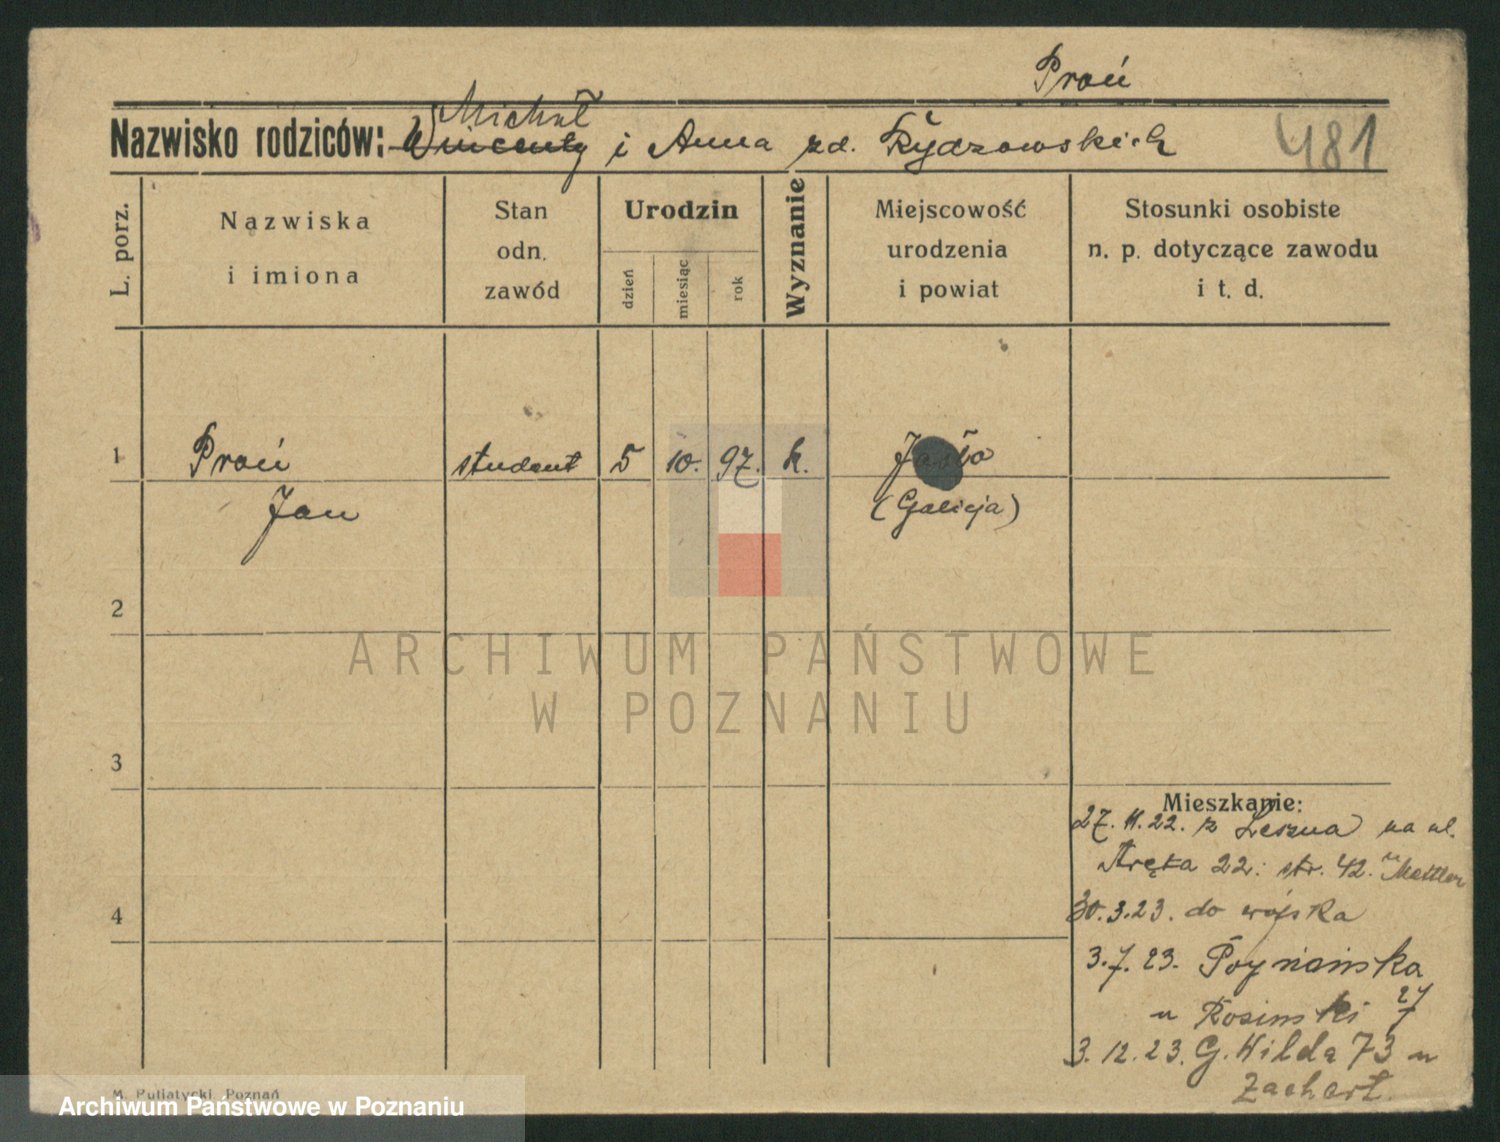 Proń
Michał
Nazwisko rodziców: Wincenty i Anna zd. Rydzowskich
481
L. porz.
Nazwiska
i imiona
Stan
odn.
zawód
Urodzin
dzień
miesiąc
rok
Wyznanie
Miejscowość
urodzenia
i powiat
Stosunki osobiste
n. p. dotyczące zawodu
i t. d.
1 Proń student 5 10. 97. k. Jasło
Jan (Galicja)
2
3
4
Mieszkanie:
27. 11. 22. z Leszna na ul.
Aręta 22. str. 42.
30. 3. 23. do wojska
3. 7. 23. Poznańska
u Rosinski 27
7
3. 12. 23. G. Wilda 73 u
Zachert.
ARCHIWUM PAŃSTWOWE
W POZNANIU
M. Putiatycki, Poznań
Archiwum Państwowe w Poznaniu